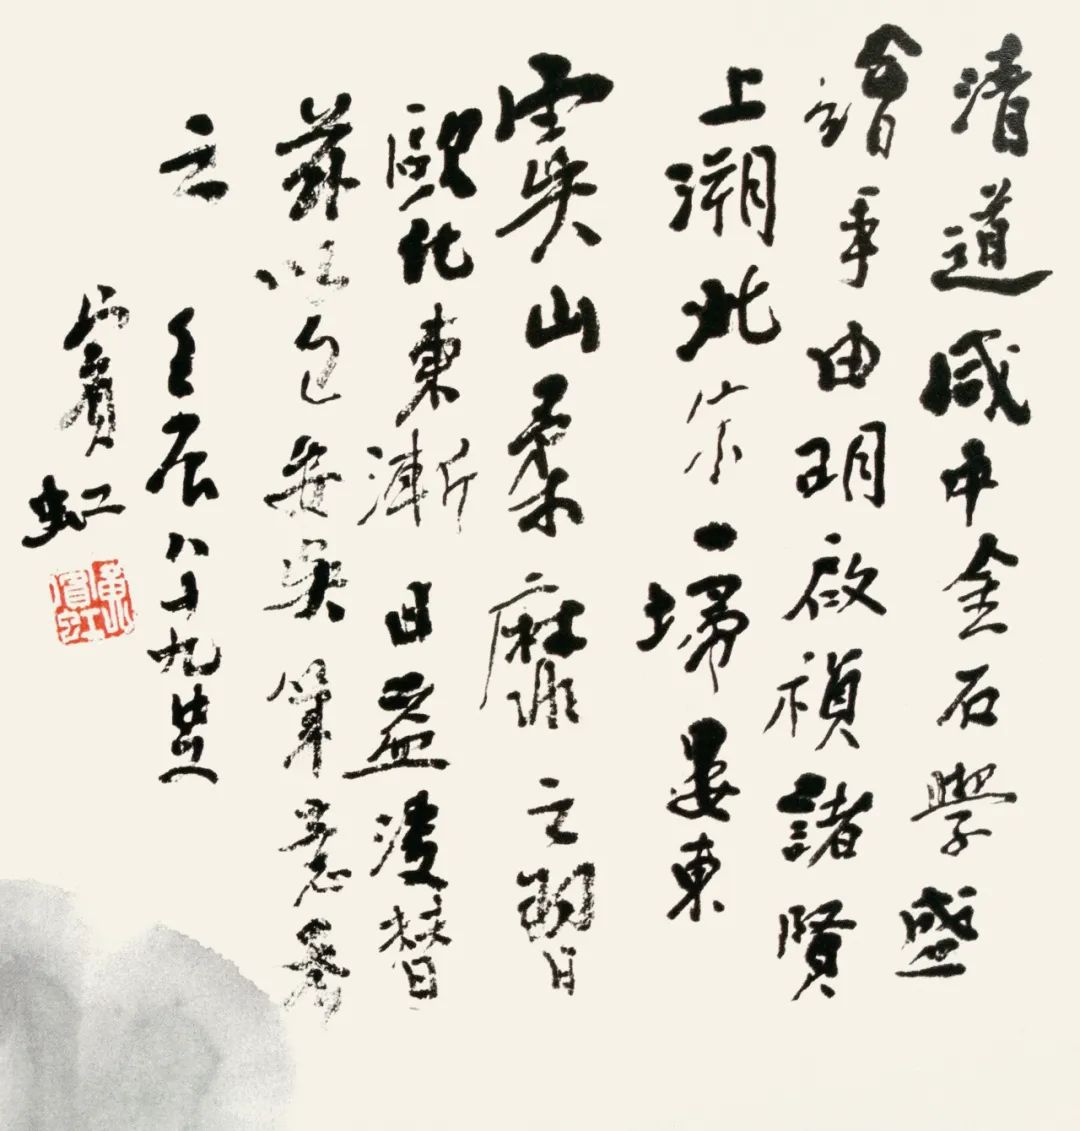 清道咸中金石學盛
繪事由明啟禎諸賢
上溯北宋一埽婁東
虞山柔靡之習
歐化東漸日益淩替
茲以包安吳筆意為
之 壬辰八十九叟
賓虹
黃賓虹